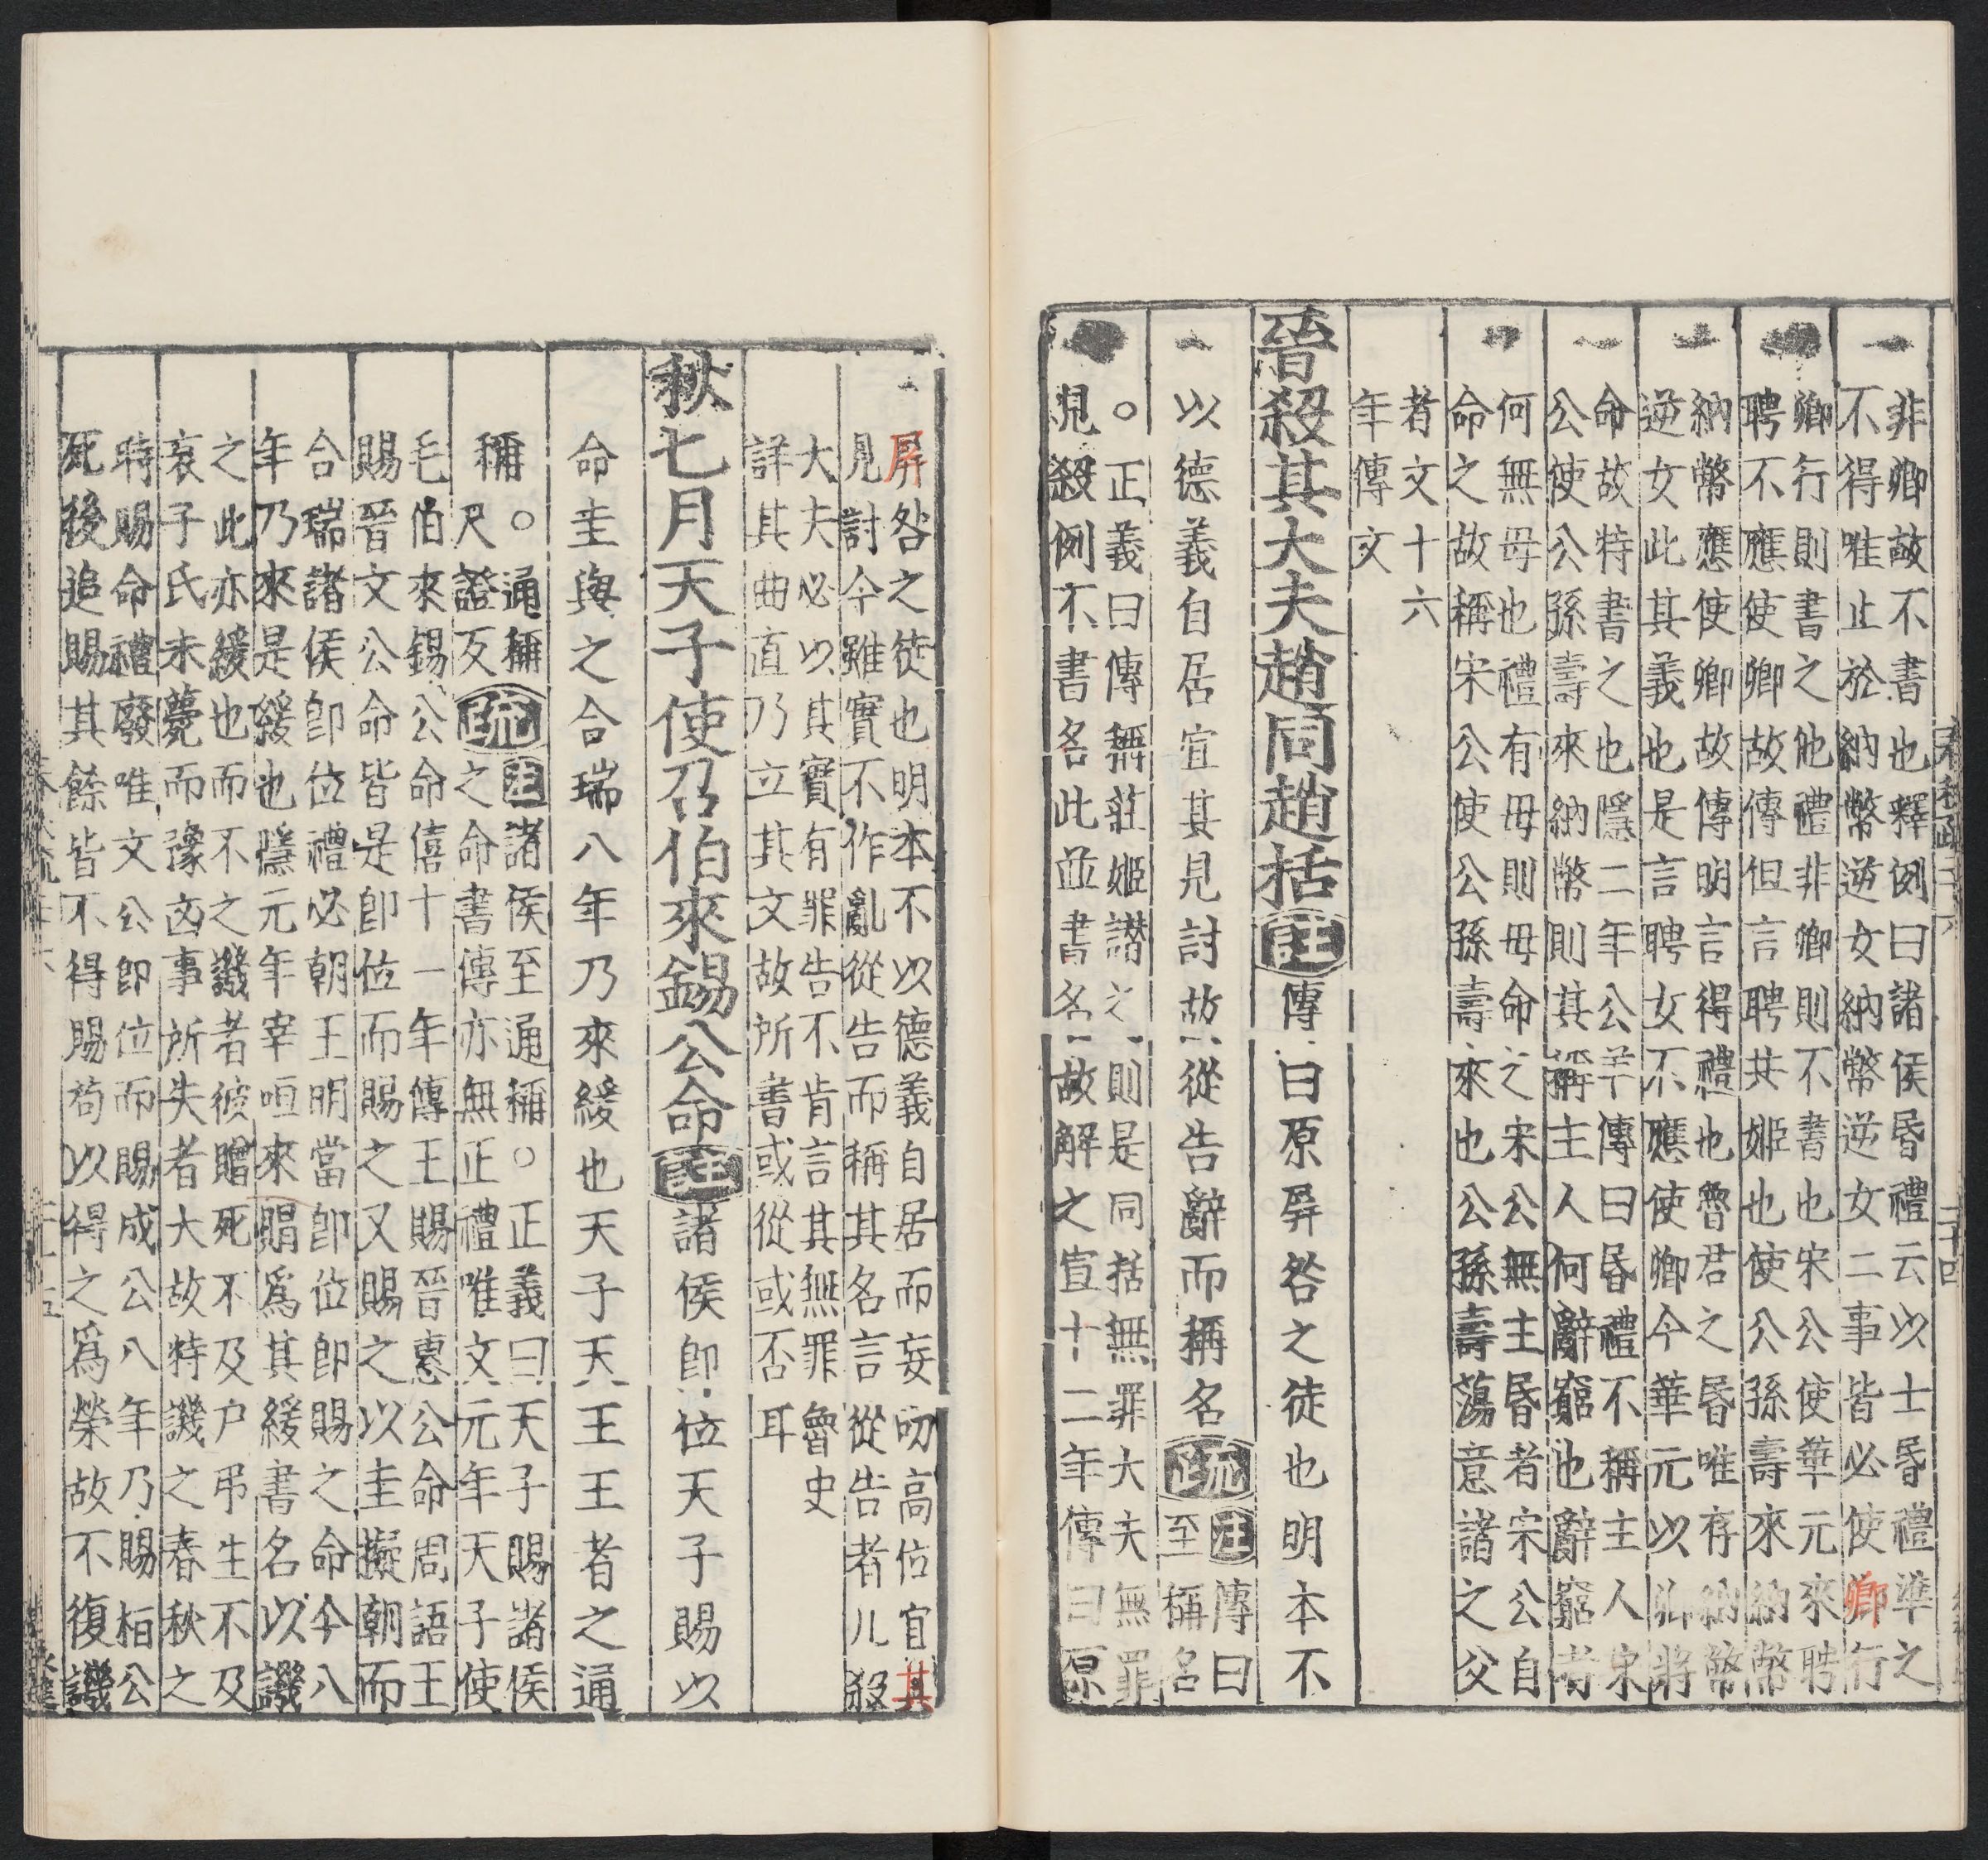 非卿故不書也釋例曰諸侯昏禮云以士昏禮準之
不得唯止於納幣逆女納幣逆女二事皆必使卿行
卿行則書之他禮非卿則不書也宋公使華元來聘
聘不應使卿故傳但言聘共姬也使公孫壽來納幣
納幣應使卿故傳明言得禮也魯君之昏唯存納幣
逆女此其義也是言聘女不應使卿今華元以卿將
命故特書之也隱二年公羊傳曰昏禮不稱主人宋
公使公孫壽來納幣則其稱主人何辭窮也辭窮者
何無母也禮有母則母命之宋公無主昏者宋公自
命之故稱宋公使公孫壽來也公孫壽蕩意諸之父
者文十六
年傳文
晉殺其大夫趙同趙括註傳曰原屏咎之徒也明本不
以德義自居宜其見討故從告辭而稱名疏注傳曰
至稱名
○正義曰傳稱莊姬譖之則是同括無罪大夫無罪
見殺例不書名此並書名故解之宣十二年傳曰原
屏咎之徒也明本不以德義自居而妄叨高位宜其
見討今雖實不作亂從告而稱其名言從告者凡殺
大夫必以其實有罪告不肯言其無罪魯史
詳其曲直乃立其文故所書或從或否耳
秋七月天子使召伯來錫公命註諸侯即位天子賜以
命圭與之合瑞八年乃來緩也天子天王王者之通
稱○通稱
尺證反疏注諸侯至通稱○正義曰天子賜諸侯
之命書傳亦無正禮唯文元年天子使
毛伯來錫公命僖十一年傳王賜晉惠公命周語王
賜晉文公命皆是即位而賜之又賜之以圭擬朝而
合瑞諸侯即位禮必朝王明當即位即賜之命今八
年乃來是緩也隱元年宰咺來賵為其緩書名以譏
之此亦緩也而不之譏者彼贈死不及尸弔生不及
哀子氏未薨而豫凶事所失者大故特譏之春秋之
時賜命禮廢唯文公即位而賜成公八年乃賜桓公
死後追賜其餘皆不得賜苟以得之為榮故不復譏